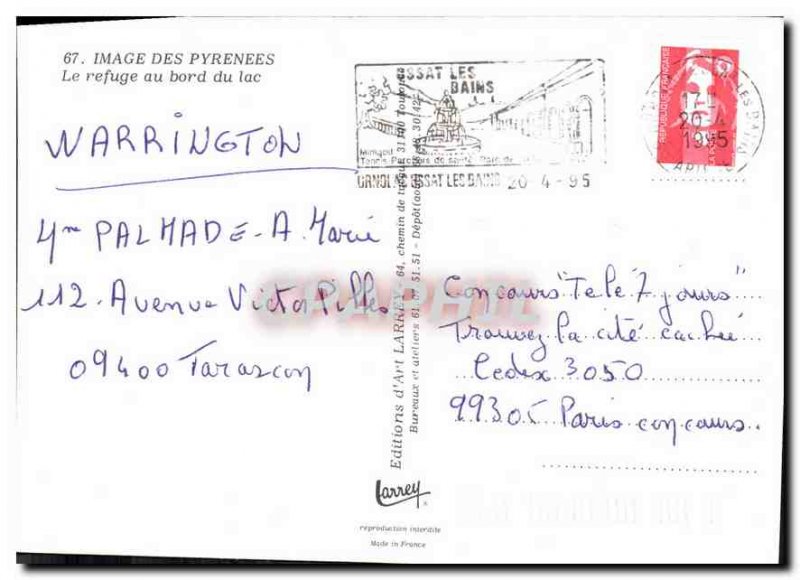 67. IMAGE DES PYRENEES
Le refuge au bord du lac
WARRINGTON
4me PALMADE-A. Marie
112. Avenue Victor Pilhes
09400 Tarascon
USSAT LES
BAINS
ORNOLAC USSAT LES BAINS 20-4-95
REPUBLIQUE FRANÇAISE
17
20-4
1995
Editions d'Art LARREY - 64, chemin de 31 Toulouse
Bureaux et ateliers 61.07.51.51 - Dépôt
CPAPHIL
Concours "Télé 7 jours"
Trouvez la cité cachée
Cedex 3050
99305 Paris concours.
Larrey
reproduction interdite
Made in France